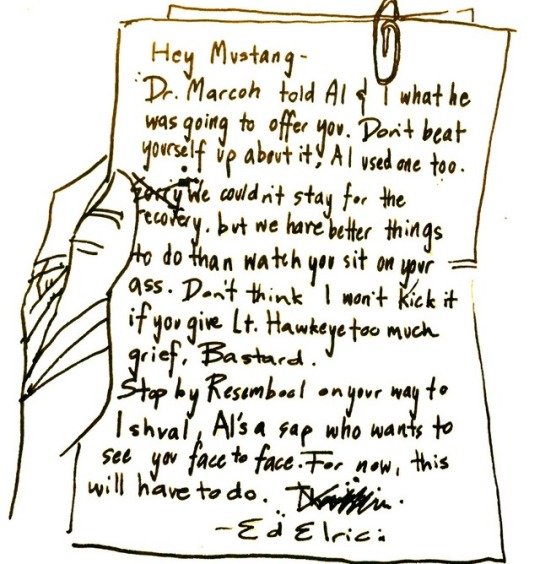 Hey Mustang-
Dr. Marcoh told Al & I what he
was going to offer you. Don't beat
yourself up about it, Al used one too.
Sorry We couldn't stay for the
recovery, but we have better things
to do than watch you sit on your
ass. Don't think I won't kick it
if you give Lt. Hawkeye too much
grief, Bastard.
Stop by Resembool on your way to
Ishval, Al's a sap who wants to
see you face to face. For now, this
will have to do.
-Ed Elric